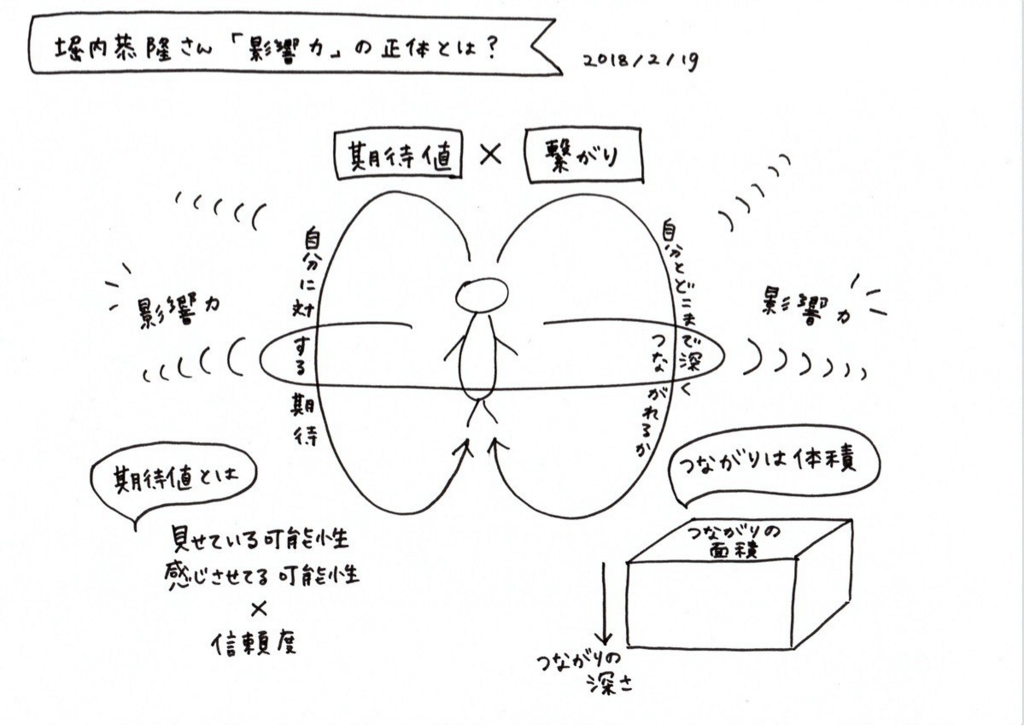 堀内恭隆さん「影響力」の正体とは?
2018/2/19
期待値 × 繋がり
自分に対する期待
自分とどこまで深く
つながれるか
影響力
影響力
期待値とは
見せている可能性
感じさせてる可能性
×
信頼度
つながりは体積
つながりの
面積
つながりの
深さ